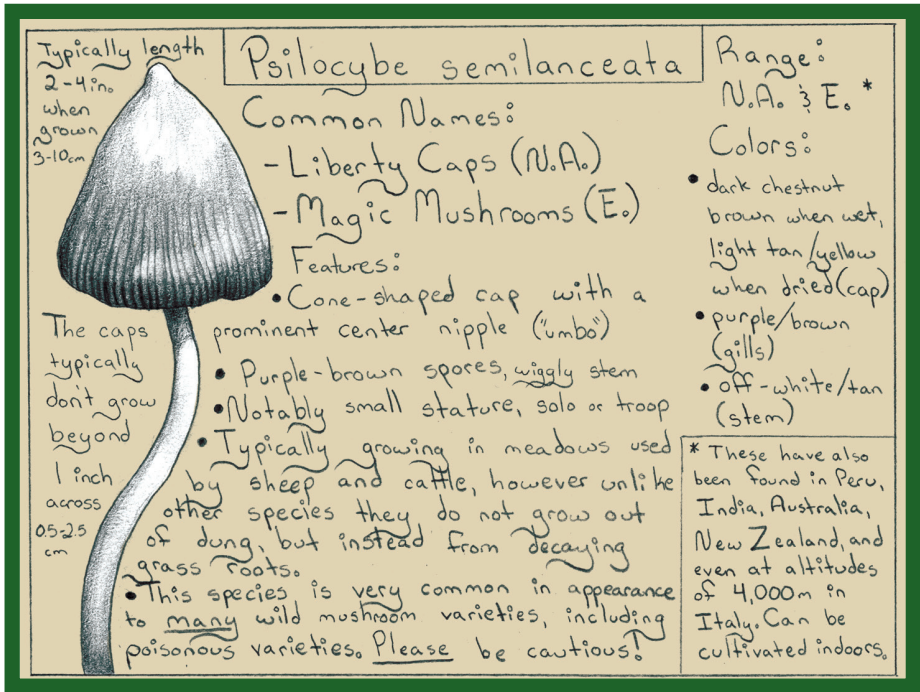 Typically length
2-4in.
when
grown
3-10cm
Psilocybe semilanceata
Common Names:
-Liberty Caps (N.A.)
-Magic Mushrooms (E.)
Features:
• Cone-shaped cap with a
prominent center nipple ("umbo")
• Purple-brown spores, wiggly stem
• Notably small stature, solo or troop
• Typically growing in meadows used
by sheep and cattle, however unlike
other species they do not grow out
of dung, but instead from decaying
grass roots.
• This species is very common in appearance
to many wild mushroom varieties, including
poisonous varieties. Please be cautious!
The caps
typically
don't grow
beyond
1 inch
across
0.5-2.5
cm
Range:
N.A. & E. *
Colors:
• dark chestnut
brown when wet,
light tan/yellow
when dried(cap)
• purple/brown
(gills)
• off-white/tan
(stem)
* These have also
been found in Peru,
India, Australia,
New Zealand, and
even at altitudes
of 4,000m in
Italy. Can be
cultivated indoors.